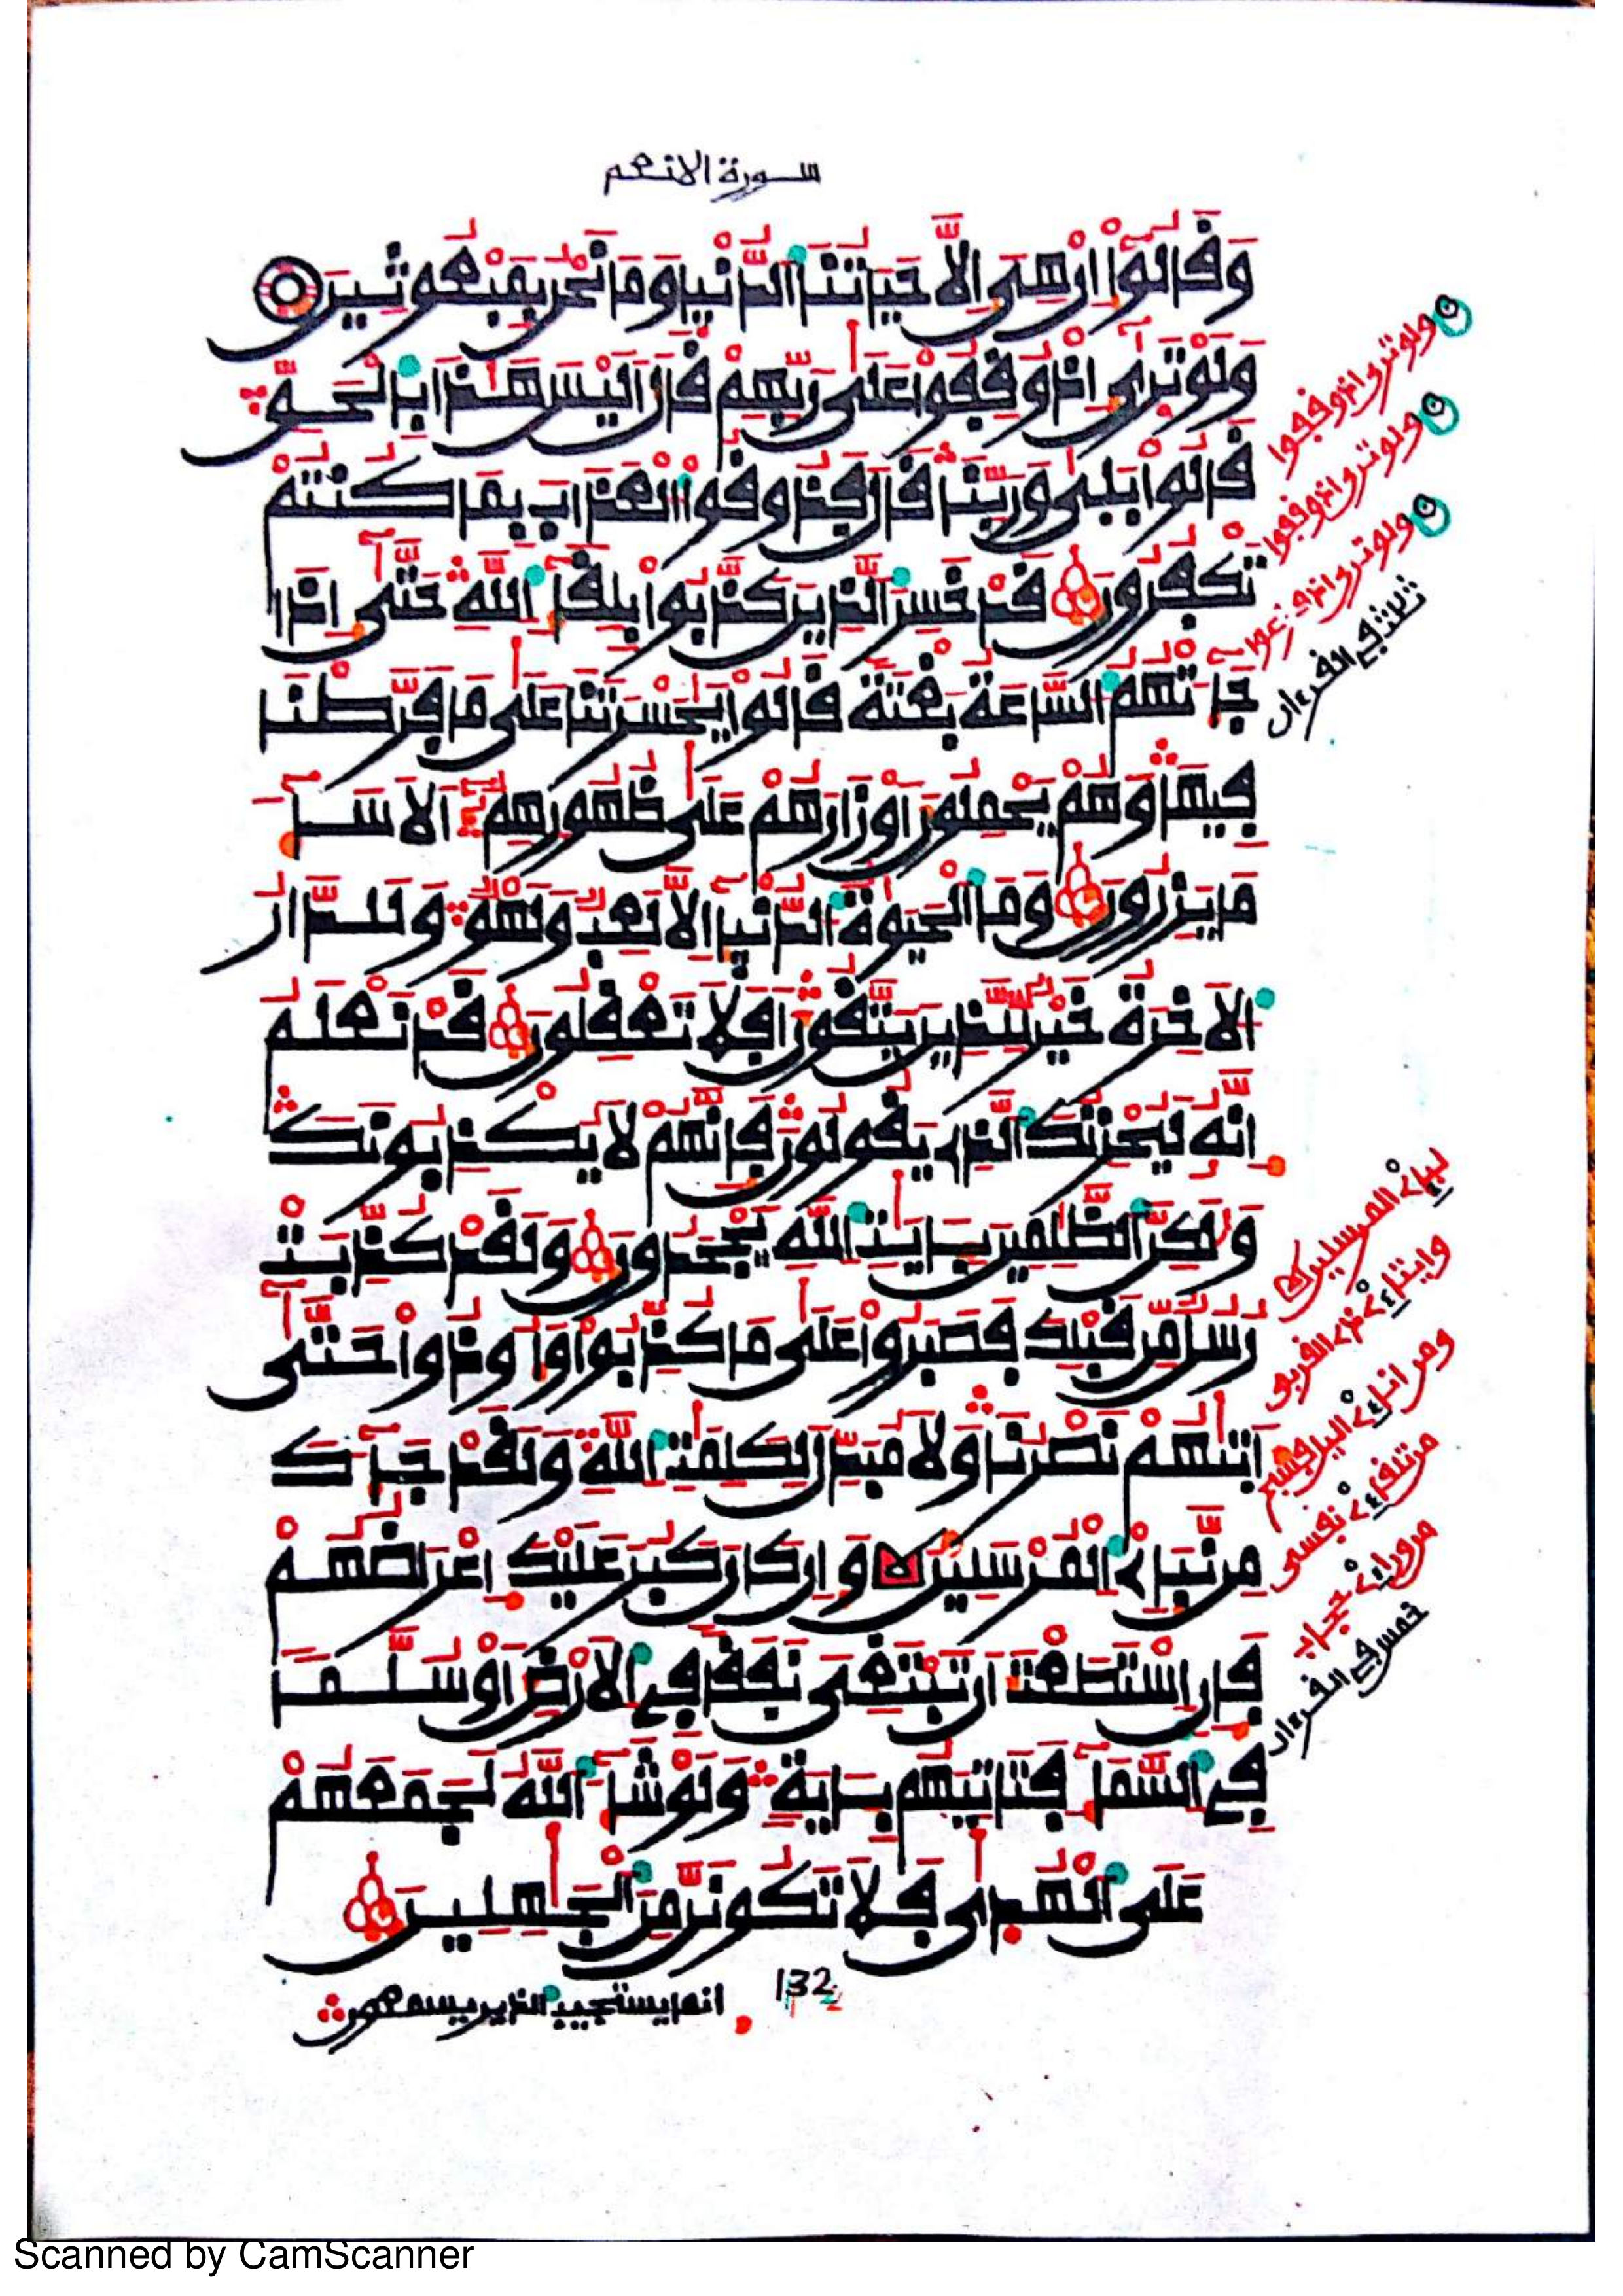 سورة الانعم
وَقَالُوٓاْ إِنْ هِىَ إِلَّا حَيَاتُنَا اَلدُّنْيَا وَمَا نَحْنُ بِمَبْعُوثِينَ
وَلَوْ تَرَىٰٓ إِذْ وُقِفُواْ عَلَىٰ رَبِّهِمْ قَالَ أَلَيْسَ هَٰذَا بِالْحَقِّ
قَالُواْ بَلَىٰ وَرَبِّنَا قَالَ فَذُوقُواْ اُلْعَذَابَ بِمَا كُنتُمْ
تَكْفُرُونَ قَدْ خَسِرَ اَلذِينَ كَذَّبُواْ بِلِقَآءِ اِللَّهِ حَتَّىٰٓ إِذَا
جَآءَتْهُمُ اُلسَّاعَةُ بَغْتَةً قَالُواْ يَٰحَسْرَتَنَا عَلَىٰ مَا فَرَّطْنَا
فِيهَا وَهُمْ يَحْمِلُونَ أَوْزَارَهُمْ عَلَىٰ ظُهُورِهِمُۥٓ أَلَا سَآءَ
مَا يَزِرُونَ وَمَا اَلْحَيَوٰةُ اُلدُّنْيَآ إِلَّا لَعِبٌ وَلَهْوٌ وَلَلدَّارُ
اُلَاخِرَةُ خَيْرٌ لِّلذِينَ يَتَّقُونَ أَفَلَا تَعْقِلُونَ قَدْ نَعْلَمُ
إِنَّهُۥ لَيُحْزِنُكَ اَلذِى يَقُولُونَ فَإِنَّهُمْ لَا يُكْذِبُونَكَ
وَلَٰكِنَّ اَلظَّٰلِمِينَ بِـَٔايَٰتِ اِللَّهِ يَجْحَدُونَ وَلَقَدْ كُذِّبَتْ
رُسُلٌ مِّن قَبْلِكَ فَصَبَرُواْ عَلَىٰ مَا كُذِّبُواْ وَأُوذُواْ حَتَّىٰٓ
أَتَىٰهُمْ نَصْرُنَا وَلَا مُبَدِّلَ لِكَلِمَٰتِ اِللَّهِ وَلَقَدْ جَآءَكَ
مِن نَّبَإِىْ اِلْمُرْسَلِينَ وَإِن كَانَ كَبُرَ عَلَيْكَ إِعْرَاضُهُمْ
فَإِنِ اِسْتَطَعْتَ أَن تَبْتَغِىَ نَفَقًا فِى اِلَارْضِ أَوْ سُلَّمًا
فِى اِلسَّمَآءِ فَتَاتِيَهُم بِـَٔايَةٍ وَلَوْ شَآءَ اَللَّهُ لَجَمَعَهُمْ
عَلَى اَلْهُدَىٰ فَلَا تَكُونَنَّ مِنَ اَلْجَٰهِلِينَ
132
انما يستجيب الذين يسمعون
ولو ترى اذ وقفوا
ولو ترى اذ وقفوا
ولو ترى اذ فزعوا
ثلاثة في القرءان
نبإى المرسلين
وايتاءى ذى القربى
ومن اناءى اليل فسبح
من تلقاءى نفسى
من وراءى حجاب
خمس في القرءان
Scanned by CamScanner